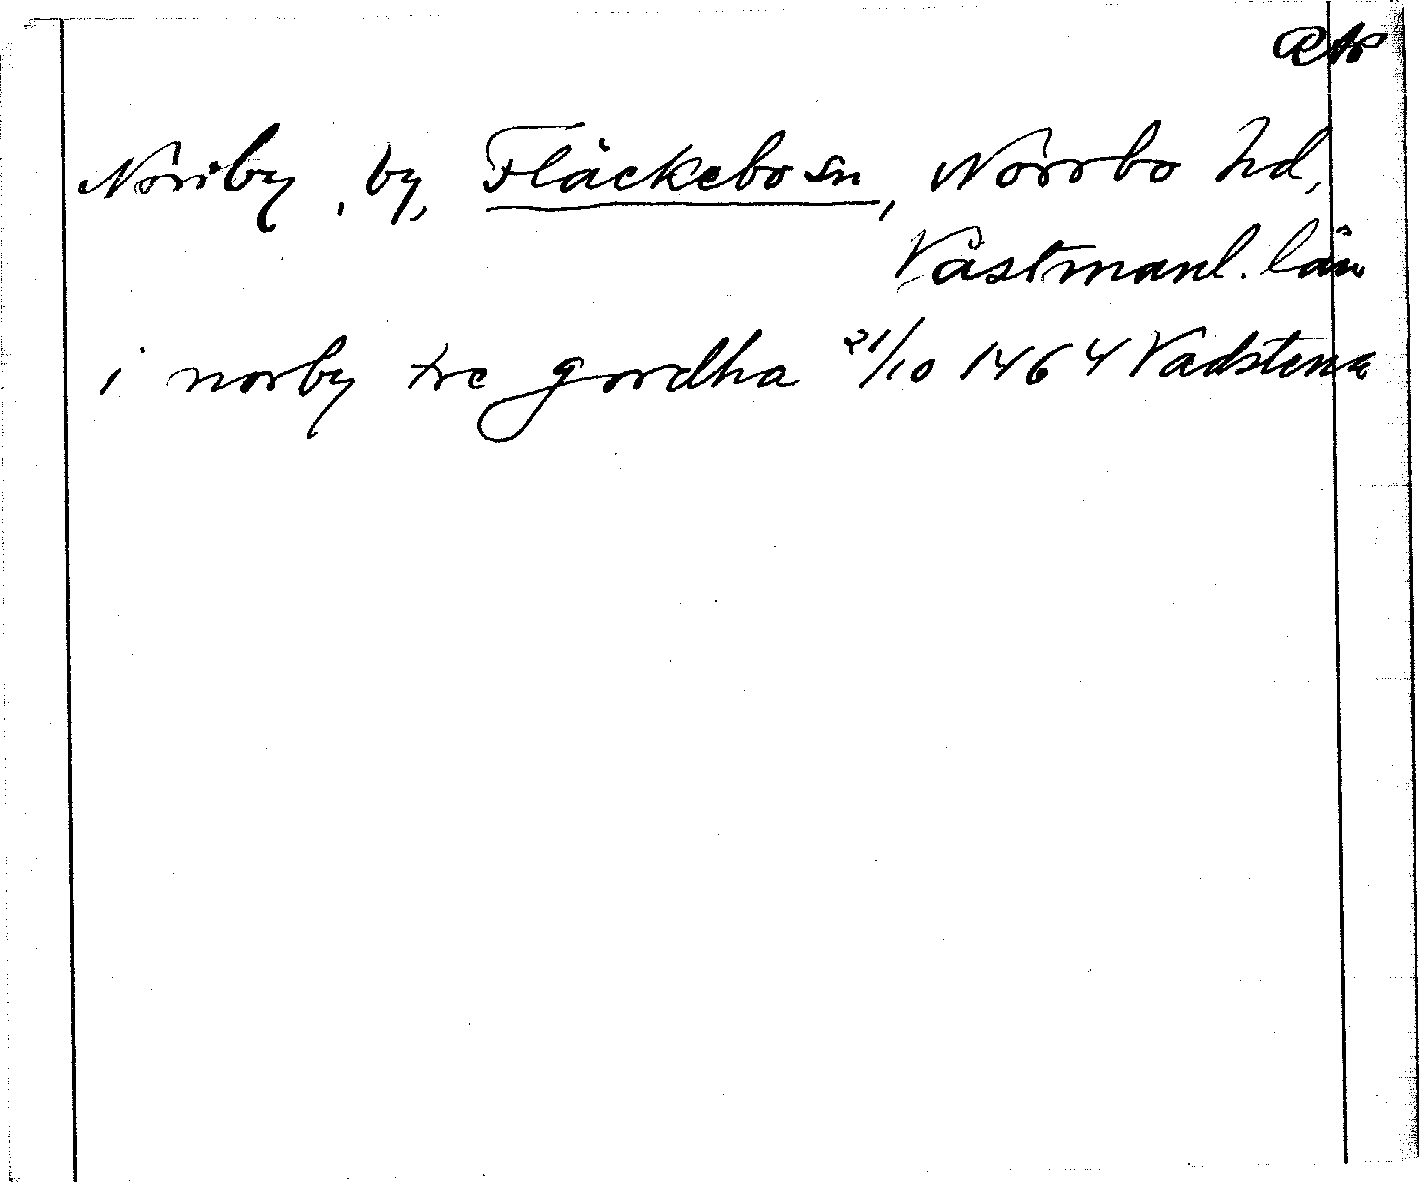 Norrby, by, Fläckebo sn, Norrbo hd,
Västmanl. län
i norby tre gordha 21/10 1464 Vadstena